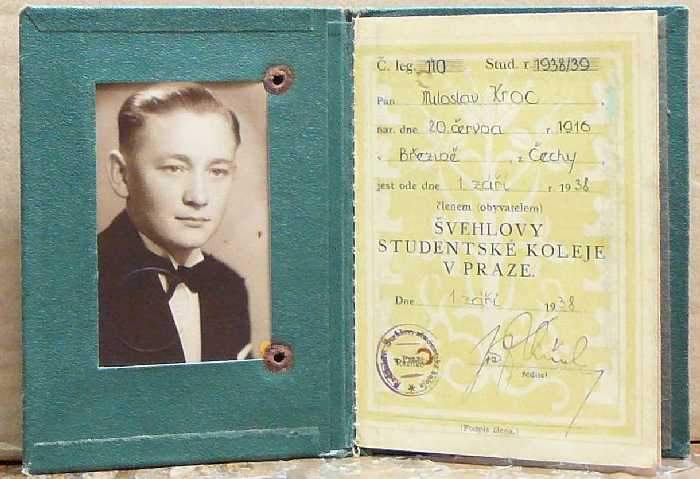 Č. leg. 110 Stud. r. 1938/39
Pan Miloslav Kroc,
nar. dne 20. června r. 1916
v Březině, z Čechy,
jest ode dne 1. září r. 1938
členem (obyvatelem)
ŠVEHLOVY
STUDENTSKÉ KOLEJE
V PRAZE.
Dne 1. září 1938
ředitel
(Podpis člena.)